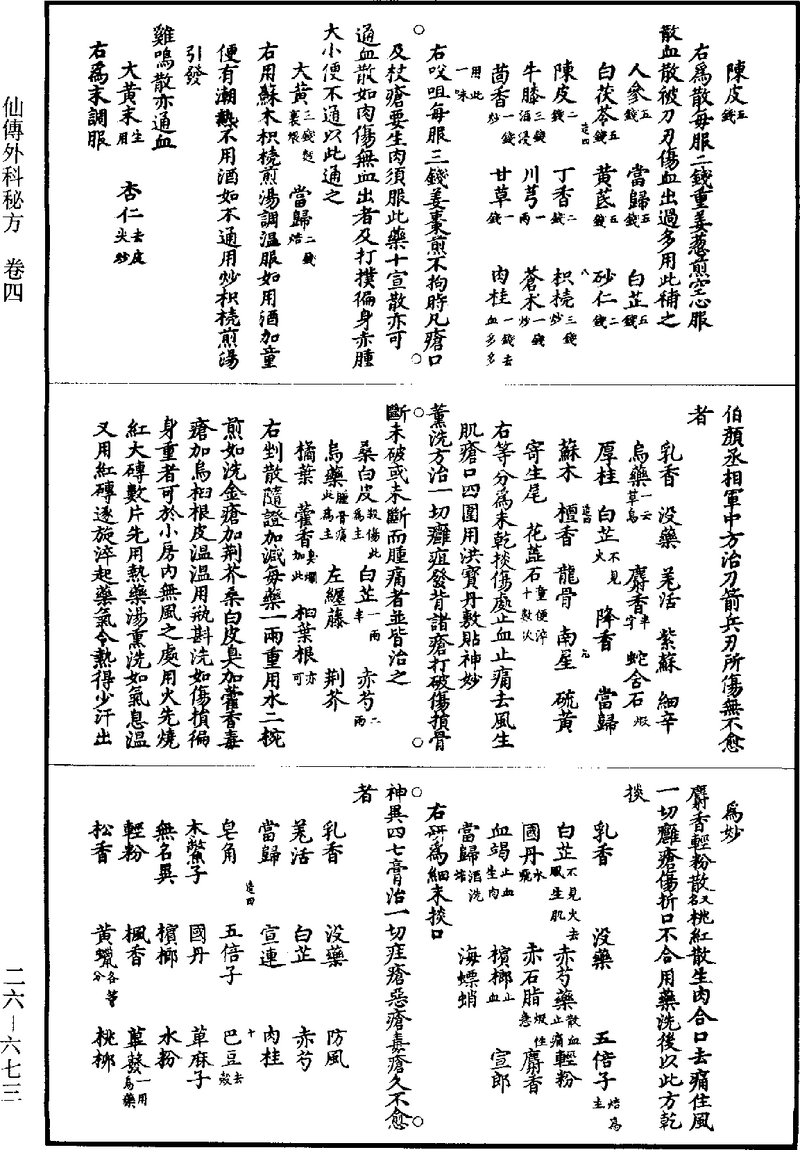 仙傳外科秘方　卷四
二六—六七三
陳皮五錢
右為散每服二錢重姜葱煎空心服
散血散被刀刃傷血出過多用此補之
人參五錢　當歸五錢　白芷五錢
白茯苓五錢　黃芪五錢　砂仁二錢
造四　八
陳皮二錢　丁香二錢　枳橈三錢炒
牛膝三錢酒浸　川芎一兩　蒼朮一錢炒
茴香一錢炒　甘草一錢　肉桂一錢去血多多
用此一味
右㕮咀每服三錢姜棗煎不拘時凡瘡口
及杖瘡要生肉須服此藥十宣散亦可
通血散如肉傷無血出者及打撲徧身赤腫
大小便不通以此通之
大黃三錢麵裹煨　當歸二錢焙
右用蘇木枳橈煎湯調溫服如用酒加童
便有潮熱不用酒如不通用炒枳橈煎湯
引發
雞鳴散亦通血
大黃末生用　杏仁去皮尖炒
右為末調服
伯顏丞相軍中方治刀箭兵刃所傷無不愈
者
乳香　沒藥　羌活　紫蘇　細辛
烏藥一云草烏　麝香半字　蛇含石煅
厚桂　白芷不見火　降香　當歸
造四　九
蘇木　檀香　龍骨　南星　硫黃
寄生尾　花蕊石童便淬十數次
右等分為末乾掞傷處止血止痛去風生
肌瘡口四圍用洪寶丹敷貼神妙
薰洗方治一切癰疽發背諸瘡打破傷損骨
斷未破或未斷而腫痛者並皆治之
桑白皮殺傷此為主　白芷一兩半　赤芍二兩
烏藥腫骨痛此為主　左纏藤　荆芥
橘葉　藿香臭爛加此　桕葉根亦可
右剉散隨證加減每藥一兩重用水二椀
煎如洗金瘡加荆芥桑白皮臭加藿香毒
瘡加烏桕根皮溫溫用瓶斟洗如傷損徧
身重者可於小房內無風之處用火先燒
紅大磚數片先用熱藥湯熏洗如氣息溫
又用紅磚逐旋淬起藥氣令熱得少汗出
為妙
麝香輕粉散又名桃紅散生肉合口去痛住風
一切癰瘡傷折口不合用藥洗後以此方乾
掞
乳香　沒藥　五倍子焙為主
白芷不見火去風生肌　赤芍藥散血止痛　輕粉
國丹水飛　赤石脂煅性急　麝香
血竭止血生肉　檳榔止血　宣郎
當歸酒洗焙　海螵蛸
右研為細末掞口
神異四七膏治一切疰瘡惡瘡毒瘡久不愈
者
乳香　沒藥　防風
羌活　白芷　赤芍
當歸　宣連　肉桂
造四　十
皂角　五倍子　巴豆去殼
木鱉子　國丹　草麻子
無名異　檳榔　水粉
輕粉　楓香　草烏一用烏藥
松香　黃蠟各等分　桃柳